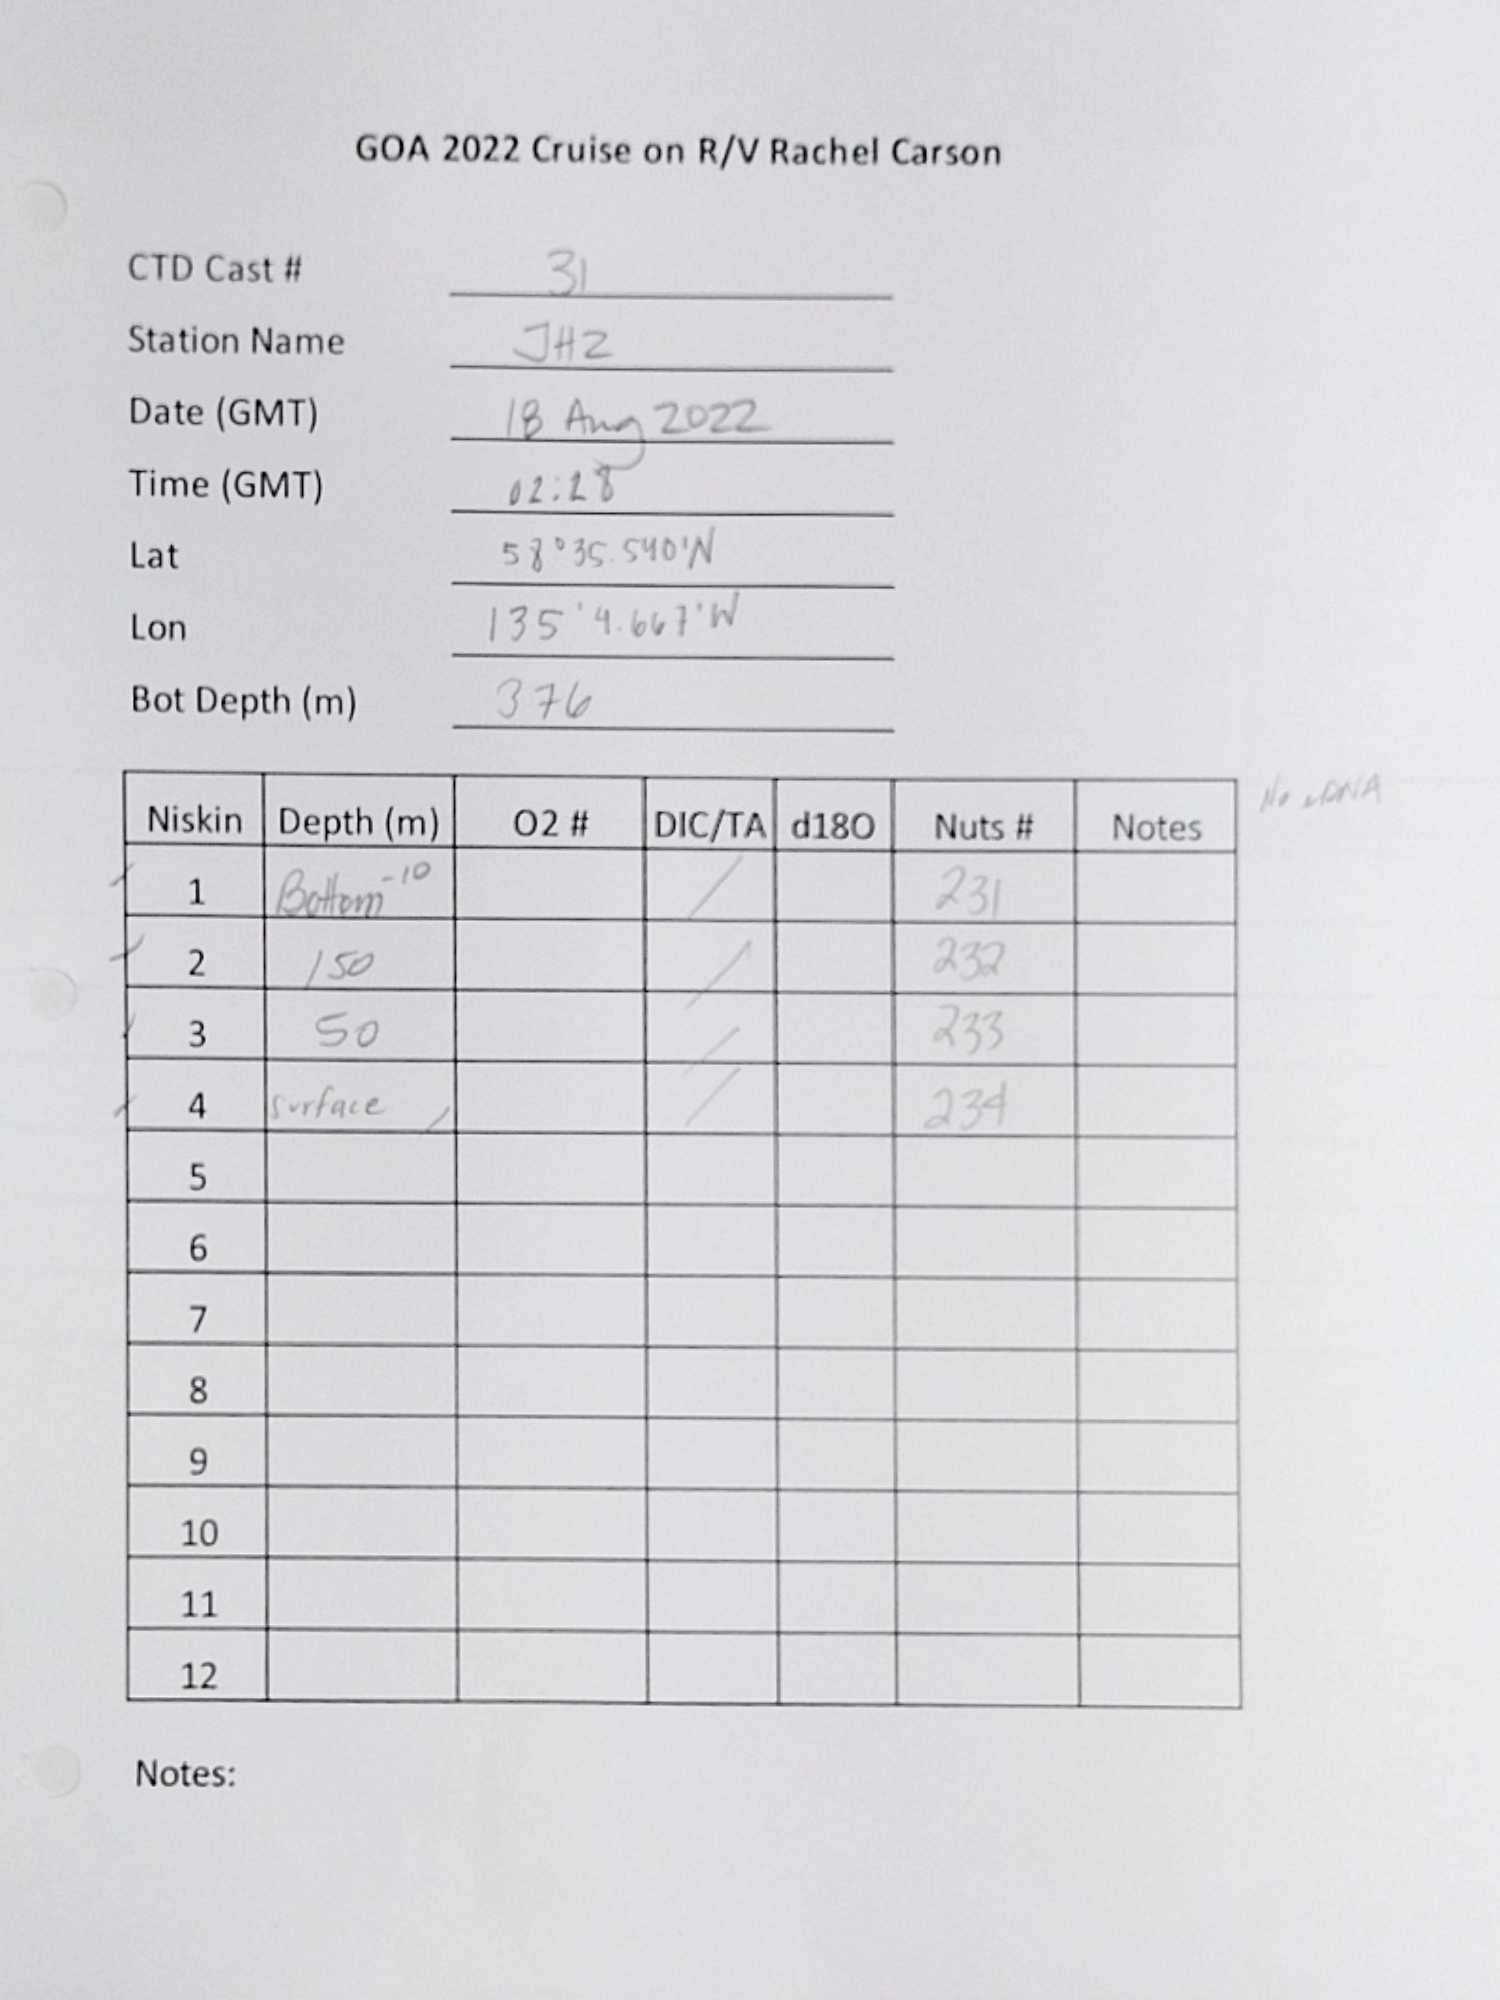 GOA 2022 Cruise on R/V Rachel Carson
CTD Cast # 31
Station Name JH2
Date (GMT) 18 Aug 2022
Time (GMT) 02:28
Lat 58°35.540'N
Lon 135'4.667'W
Bot Depth (m) 376
Niskin Depth (m) O2 # DIC/TA d18O Nuts # Notes No eDNA
1 Bottom -10 / 231
2 150 / 232
3 50 / 233
4 surface / / 234
5
6
7
8
9
10
11
12
Notes: